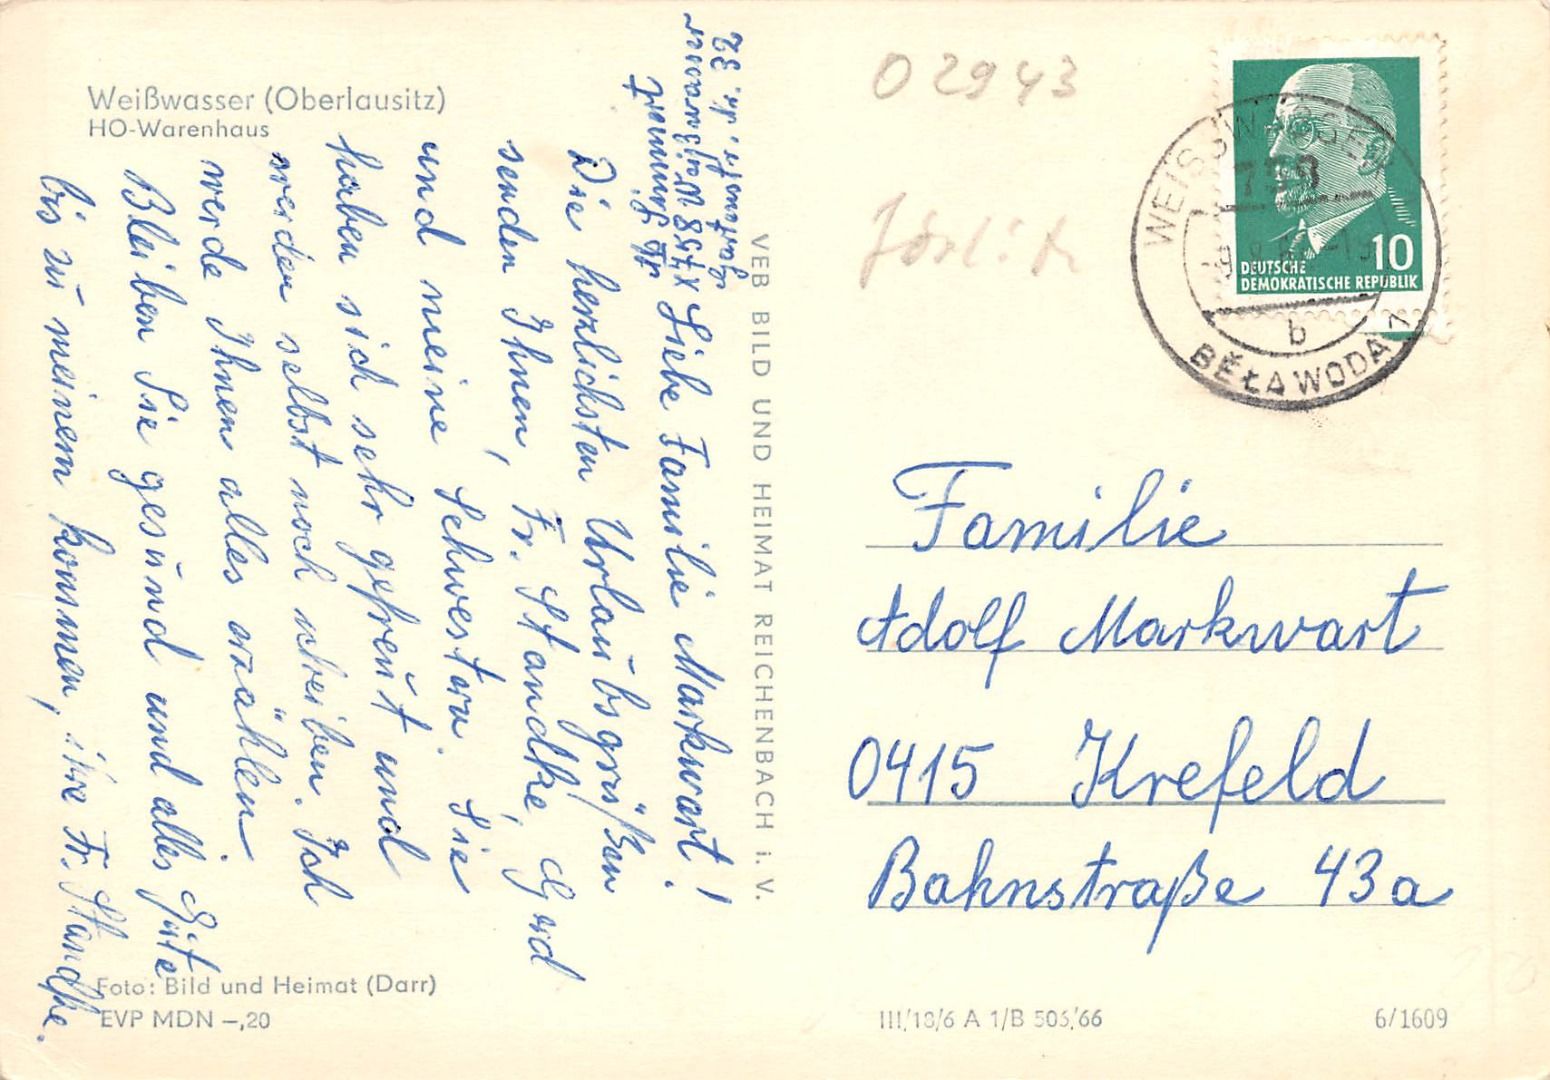 Weißwasser (Oberlausitz)
HO-Warenhaus
Liebe Familie Markwart!
Die herzlichsten Urlaubsgrüßen
senden Ihnen, Fr. Standke, Gerd
und meine Schwestern. Sie
haben sich sehr gefreut und
werden selbst noch schreiben. Ich
werde Ihnen alles erzählen.
Bleiben Sie gesund und alles Gute
bis zu meinem kommen, ihre Fr. Standke.
VEB BILD UND HEIMAT REICHENBACH i. V.
Foto: Bild und Heimat (Darr)
EVP MDN –,20
02943
WEISSWASSER
b
BĚŁA WODA
10
DEUTSCHE
DEMOKRATISCHE REPUBLIK
Familie
Adolf Markwart
0415 Krefeld
Bahnstraße 43a
III/18/6 A 1/B 506/66
6/1609